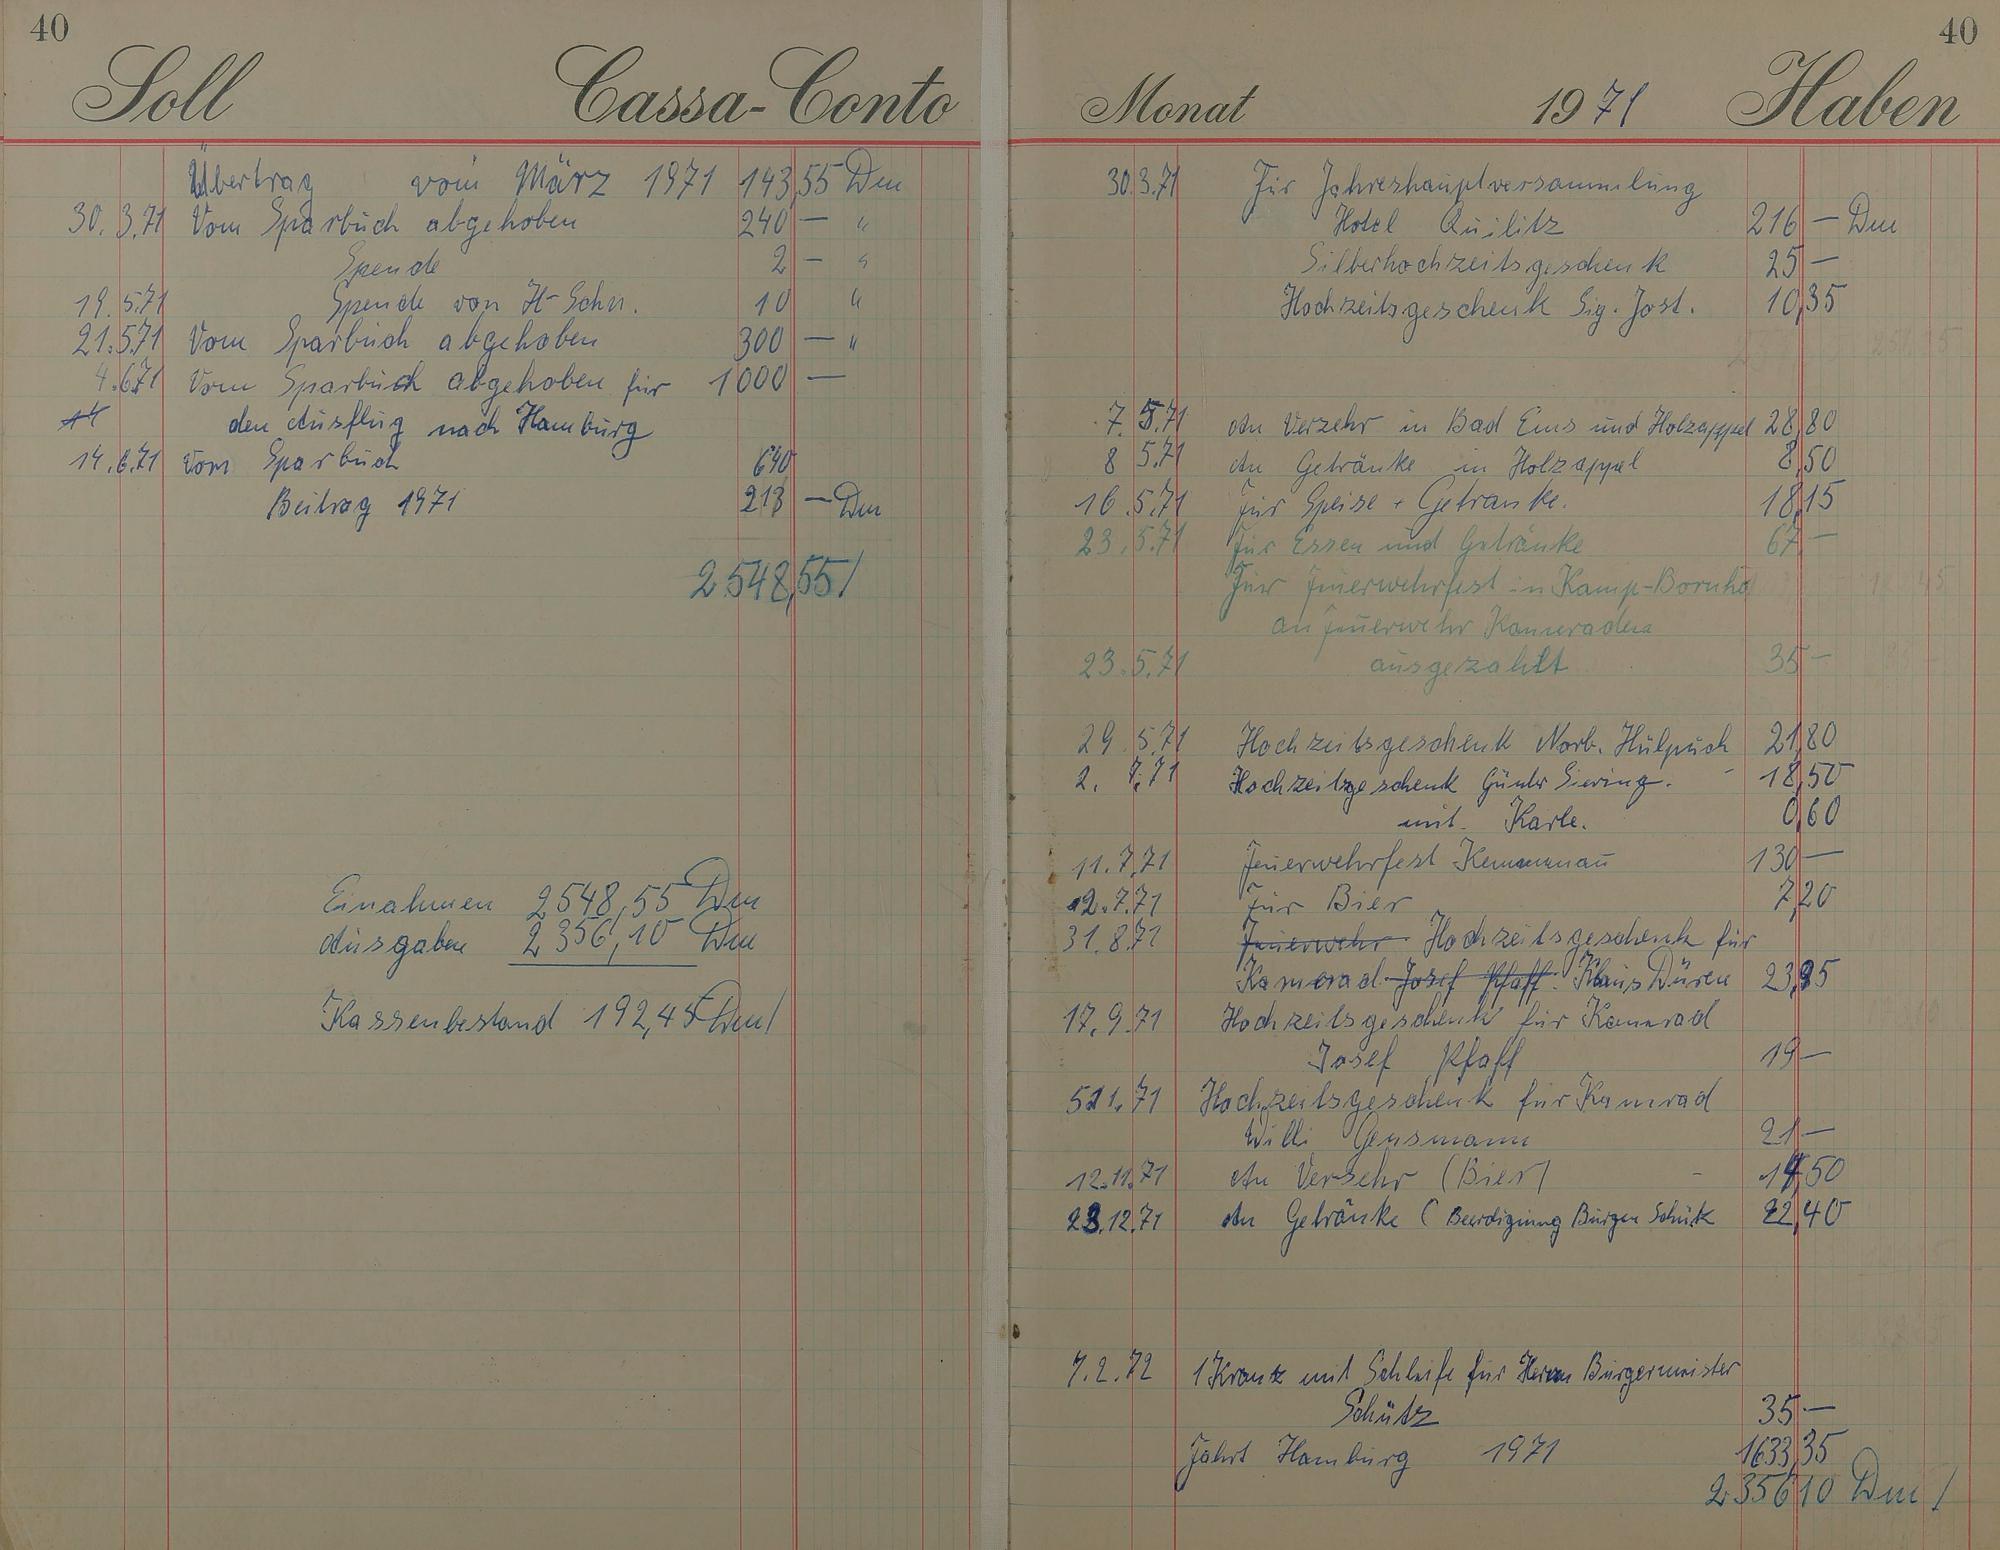 40
Soll Cassa-Conto
Übertrag vom März 1971 143,55 Dm
30. 3.71 Vom Sparbuch abgehoben 240 — "
Spende 2 — "
19. 5.71 Spende von H- Schn. 10 "
21.5.71 Vom Sparbuch abgehoben 300 — "
4.6.71 Vom Sparbuch abgehoben für 1000 —
den Ausflug nach Hamburg
14.6.71 vom Sparbuch 640
Beitrag 1971 213 — Dm
2548,55/
Einahmen 2548,55 Dm
Ausgaben 2356,10 Dm
Kassenbestand 192,45 Dm/
40
Monat 1971 Haben
30.3.71 Für Jahreshauptversammlung
Hotel Quilitz 216 — Dm
Silberhochzeitsgeschenk 25 —
Hochzeitsgeschenk Sig. Jost. 10,35
7. 5.71 An Verzehr in Bad Ems und Holzappel 28,80
8 5.71 An Getränke in Holzappel 8,50
16.5.71 Für Speise + Getranke. 18,15
23.5.71 Für Essen und Getränke 67,—
Für Feuerwehrfest in Kamp-Bornho
an Feuerwehr Kameraden
23.5.71 ausgezahlt 35 —
29.5.71 Hochzeitsgeschenk Norb. Hülpüch 21,80
2. 7.71 Hochzeitsgeschenk Günter Siering. 18,50
mit Karte. 0,60
11.7.71 Feuerwehrfest Kemmenau 130 —
12.7.71 Für Bier 7,20
31.8.71 Feuerwehr Hochzeitsgeschenk für
Kamerad Josef Pfaff Klaus Düren 23,95
17.9.71 Hochzeitsgeschenk für Kamrad
Josef Pfaff 19 —
5.11.71 Hochzeitsgeschenk für Kamrad
Willi Gensmann 21 —
12.11.71 An Verzehr (Bier) 14,50
23.12.71 An Getränke ( Beerdigung Bürgen Schük 22,40
7.2.72 1 Kranz mit Schleife für Herrn Bürgermeister
Schütz 35 —
Fahrt Hamburg 1971 1633,35
2356,10 Dm/